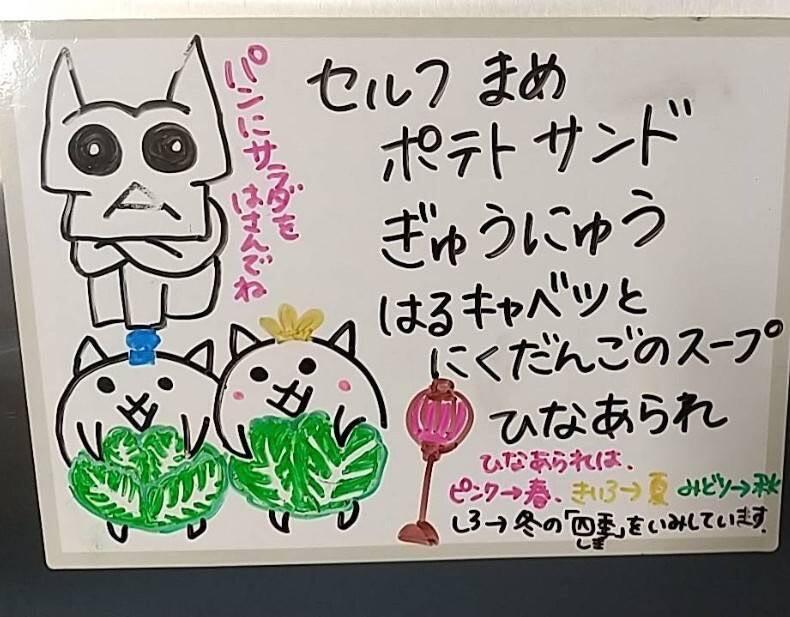 パンにサラダを
はさんでね
セルフ まめ
ポテト サンド
ぎゅうにゅう
はるキャベツと
にくだんごのスープ
ひなあられ
ひなあられは、
ピンク→春、きいろ→夏 みどり→秋
しろ→冬の「四季」をいみしています。
しき